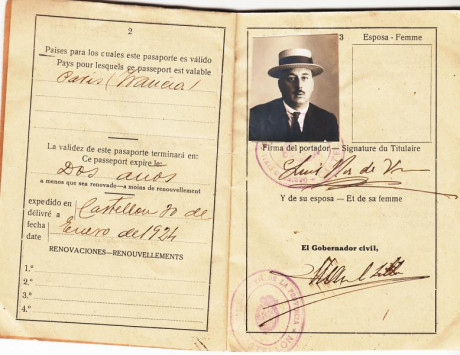 2
Países para los cuales este pasaporte es válido
Pays pour lesquels ce passeport est valable
Paris (Francia)
La validez de este pasaporte terminará en:
Ce passeport expire le:
Dos años
a menos que sea renovado — a moins de renouvellement
expedido en
délivré a
Castellon 30 de
fecha
date
Enero de 1924
RENOVACIONES—RENOUVELLEMENTS
1.ª
2.ª
3.ª
4.ª
3
Esposa - Femme
Firma del portador — Signature du Titulaire
Luis
de
Y de su esposa — Et de sa femme
El Gobernador civil,